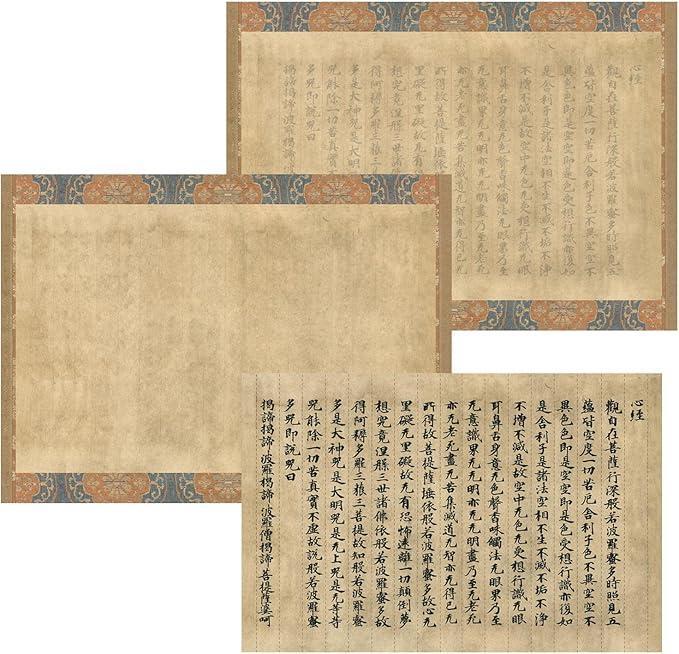 心經
觀自在菩薩行深般若波羅蜜多時照見五
蘊皆空度一切苦厄舍利子色不異空空不
異色色即是空空即是色受想行識亦復如
是舍利子是諸法空相不生不滅不垢不淨
不增不減是故空中无色无受想行識无眼
耳鼻舌身意无色聲香味觸法无眼界乃至
无意識界无无明亦无无明盡乃至无老死
亦无老死盡无苦集滅道无智亦无得已无
所得故菩提薩埵依
罣礙无罣礙故无有
想究竟涅槃三世諸
得阿耨多羅三藐三
多是大神咒是大明
咒能除一切苦真實
多咒即說咒曰
揭諦揭諦波羅揭諦
心經
觀自在菩薩行深般若波羅蜜多時照見五
蘊皆空度一切苦厄舍利子色不異空空不
異色色即是空空即是色受想行識亦復如
是舍利子是諸法空相不生不滅不垢不淨
不增不減是故空中无色无受想行識无眼
耳鼻舌身意无色聲香味觸法无眼界乃至
无意識界无无明亦无无明盡乃至无老死
亦无老死盡无苦集滅道无智亦无得已无
所得故菩提薩埵依般若波羅蜜多故心无
罣礙无罣礙故无有恐怖遠離一切顛倒夢
想究竟涅槃三世諸佛依般若波羅蜜多故
得阿耨多羅三藐三菩提故知般若波羅蜜
多是大神咒是大明咒是无上咒是无等等
咒能除一切苦真實不虛故說般若波羅蜜
多咒即說咒曰
揭諦揭諦 波羅揭諦 波羅僧揭諦 菩提薩婆呵